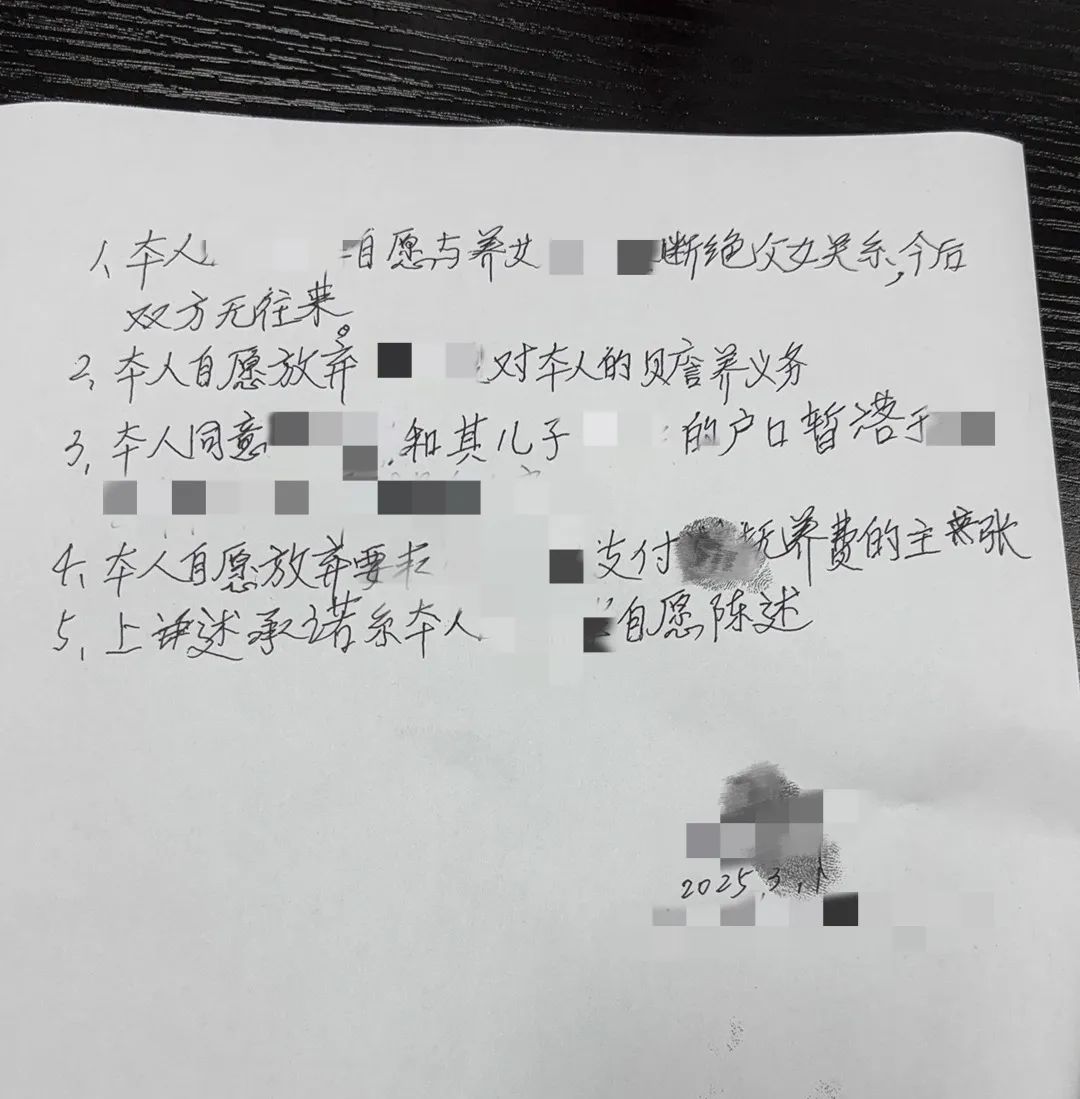 1、本人自愿与养女断绝父女关系,今后
双方无往来。
2、本人自愿放弃对本人的赡养义务
3、本人同意和其儿子的户口暂落于
4、本人自愿放弃要求支付抚养费的主张
5、上述承诺系本人自愿陈述
2025.3.1